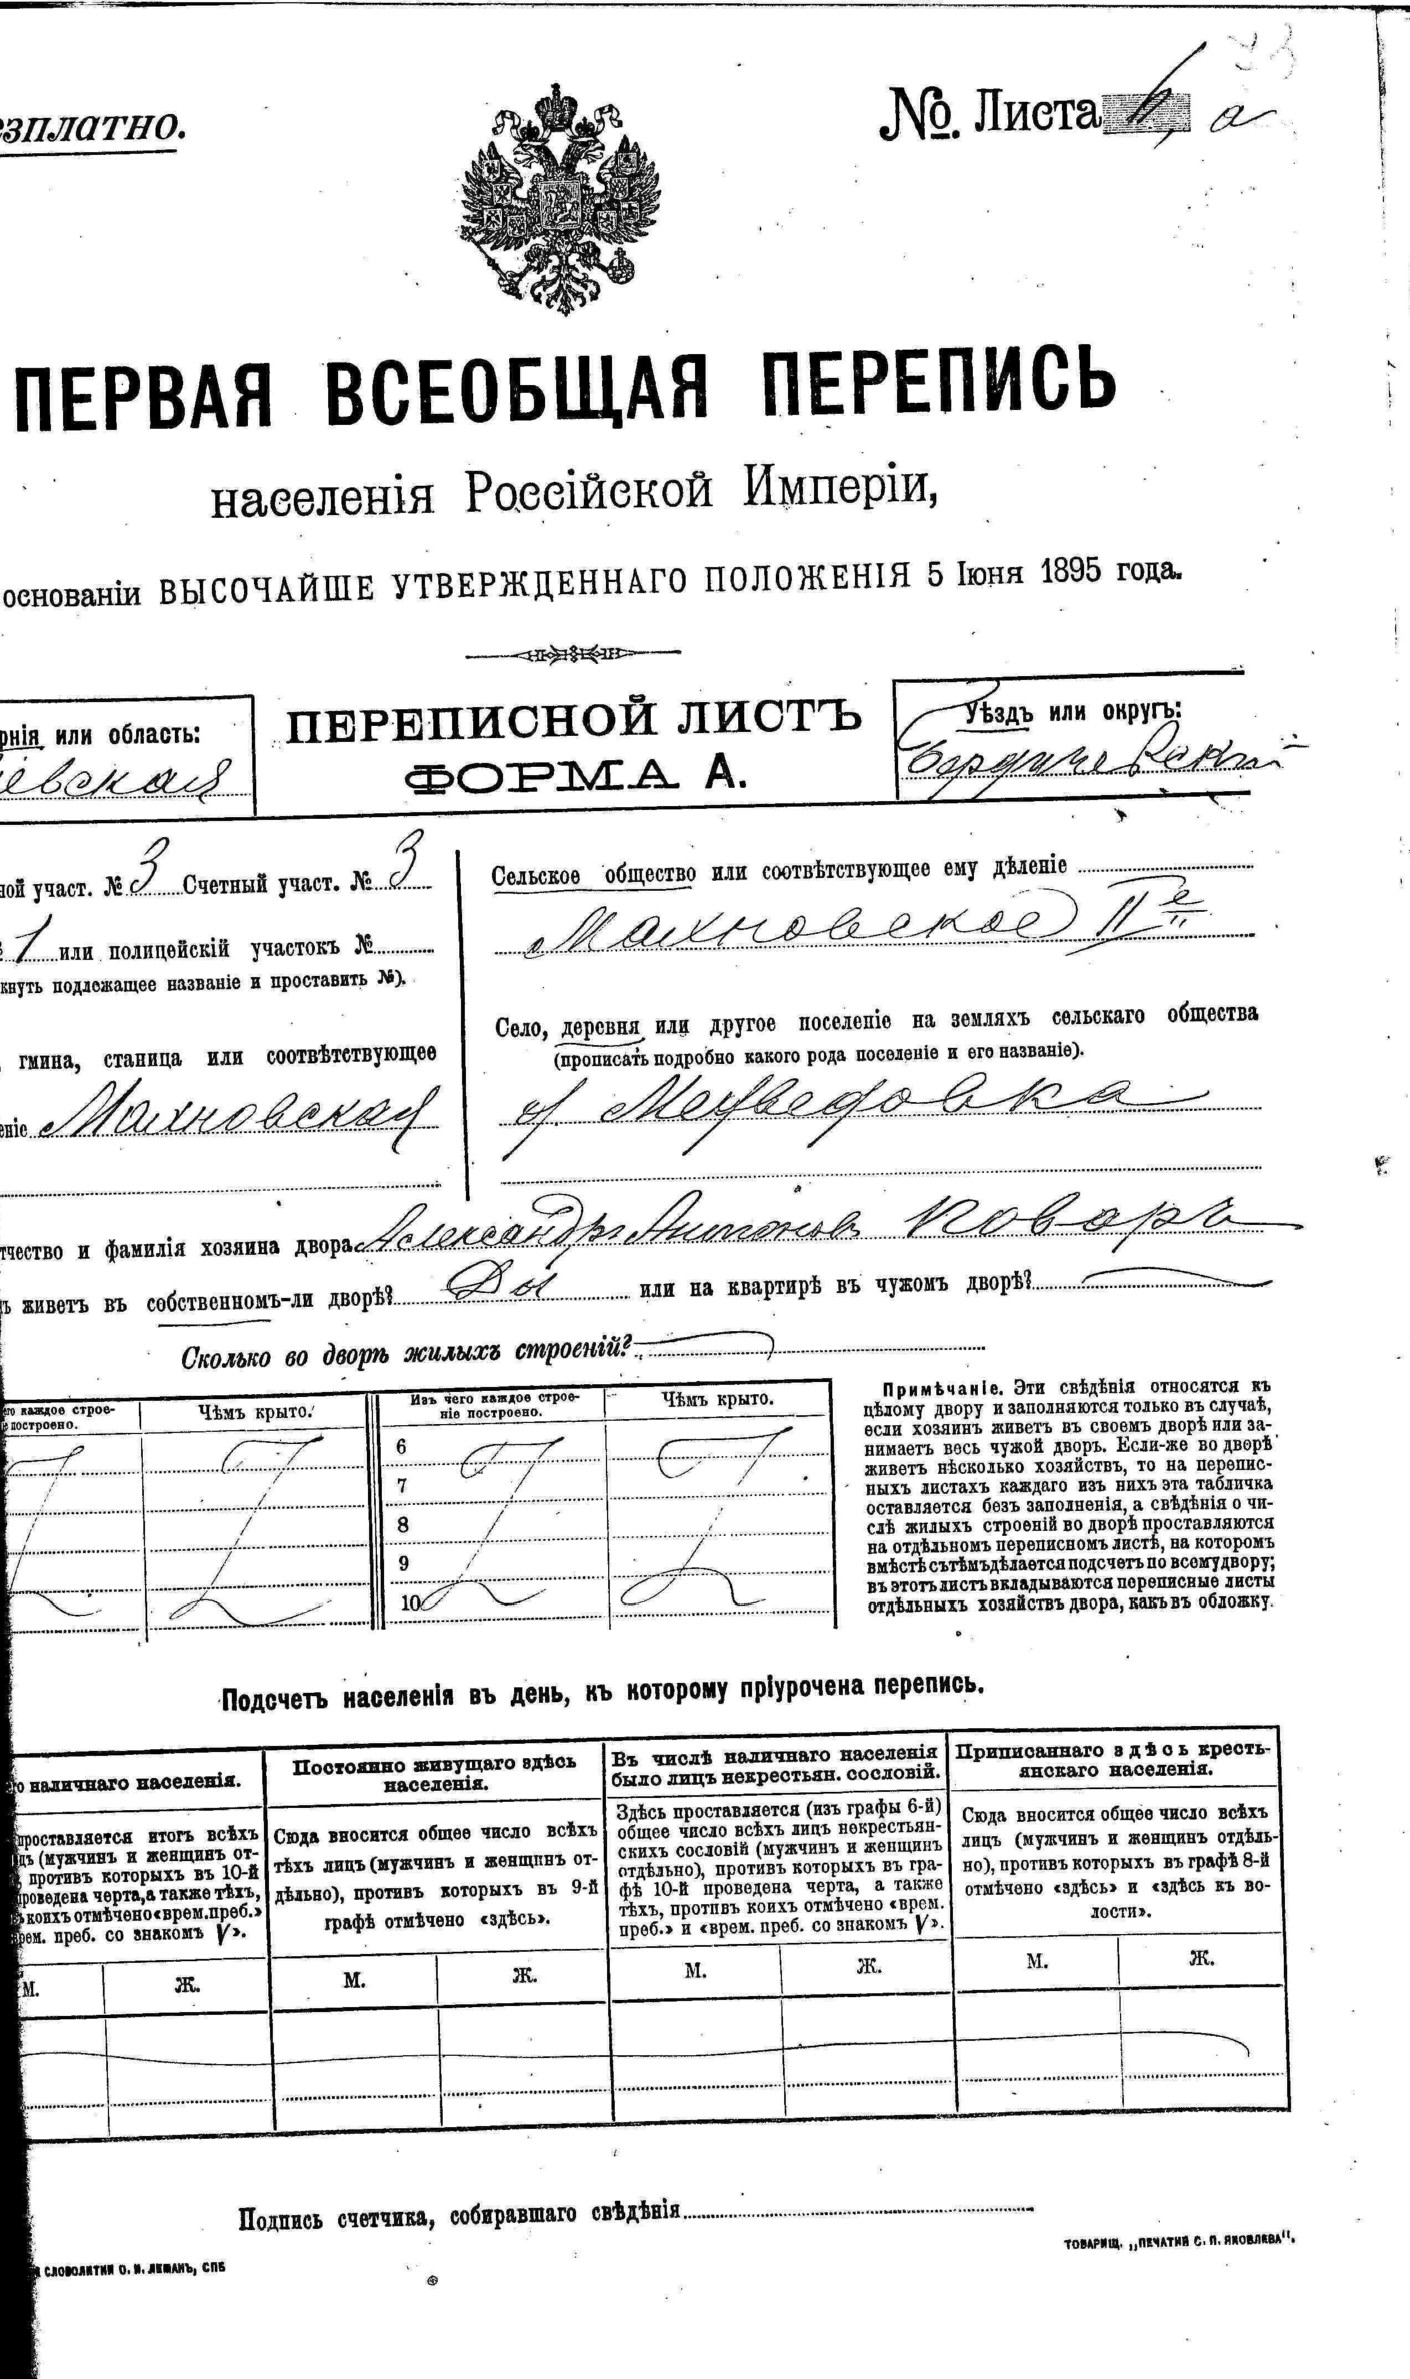 езплатно.
№. Листа а
ПЕРВАЯ ВСЕОБЩАЯ ПЕРЕПИСЬ
населенія Россійской Имперіи,
основаніи ВЫСОЧАЙШЕ УТВЕРЖДЕННАГО ПОЛОЖЕНІЯ 5 Іюня 1895 года.
рнія или область:
іевская
ПЕРЕПИСНОЙ ЛИСТЪ
ФОРМА А.
Уѣздъ или округъ:
Бердичевскій
ной участ. № 3 Счетный участ. № 3
1 или полицейскій участокъ №
кнуть подлежащее названіе и проставить №).
гмина, станица или соотвѣтствующее
еніе Махновская
Сельское общество или соотвѣтствующее ему дѣленіе
Махновское IIе
Село, деревня или другое поселеніе на земляхъ сельскаго общества
(прописать подробно какого рода поселеніе и его названіе).
д. Медведовка
тчество и фамилія хозяина двора Александръ Антоновъ Коваръ
ъ живетъ въ собственномъ-ли дворѣ? Да или на квартирѣ въ чужомъ дворѣ?
Сколько во дворѣ жилыхъ строеній?
го каждое строе-
е построено.
Чѣмъ крыто.
Изъ чего каждое строе-
ніе построено.
Чѣмъ крыто.
6
7
8
9
10
Примѣчаніе. Эти свѣдѣнія относятся къ
цѣлому двору и заполняются только въ случаѣ,
если хозяинъ живетъ въ своемъ дворѣ или за-
нимаетъ весь чужой дворъ. Если-же во дворѣ
живетъ нѣсколько хозяйствъ, то на перепис-
ныхъ листахъ каждаго изъ нихъ эта табличка
оставляется безъ заполненія, а свѣдѣнія о чи-
слѣ жилыхъ строеній во дворѣ проставляются
на отдѣльномъ переписномъ листѣ, на которомъ
вмѣстѣ съ тѣмъ дѣлается подсчетъ по всему двору;
въ этотъ листъ вкладываются переписные листы
отдѣльныхъ хозяйствъ двора, какъ въ обложку.
Подсчетъ населенія въ день, къ которому пріурочена перепись.
го наличнаго населенія.
проставляется итогъ всѣхъ
цъ (мужчинъ и женщинъ от-
противъ которыхъ въ 10-й
проведена черта, а также тѣхъ,
ъ коихъ отмѣчено «врем. преб.»
рем. преб. со знакомъ V».
Постоянно живущаго здѣсь
населенія.
Сюда вносится общее число всѣхъ
тѣхъ лицъ (мужчинъ и женщинъ от-
дѣльно), противъ которыхъ въ 9-й
графѣ отмѣчено «здѣсь».
Въ числѣ наличнаго населенія
было лицъ некрестьян. сословій.
Здѣсь проставляется (изъ графы 6-й)
общее число всѣхъ лицъ некрестьян-
скихъ сословій (мужчинъ и женщинъ
отдѣльно), противъ которыхъ въ гра-
фѣ 10-й проведена черта, а также
тѣхъ, противъ коихъ отмѣчено «врем.
преб.» и «врем. преб. со знакомъ V».
Приписаннаго здѣсь кресть-
янскаго населенія.
Сюда вносится общее число всѣхъ
лицъ (мужчинъ и женщинъ отдѣль-
но), противъ которыхъ въ графѣ 8-й
отмѣчено «здѣсь» и «здѣсь къ во-
лости».
М. Ж. М. Ж. М. Ж. М. Ж.
Подпись счетчика, собиравшаго свѣдѣнія
СЛОВОЛИТНИ О. И. ЛЕМАНЪ, СПБ
ТОВАРИЩ. „ПЕЧАТНИ С. П. ЯКОВЛЕВА".